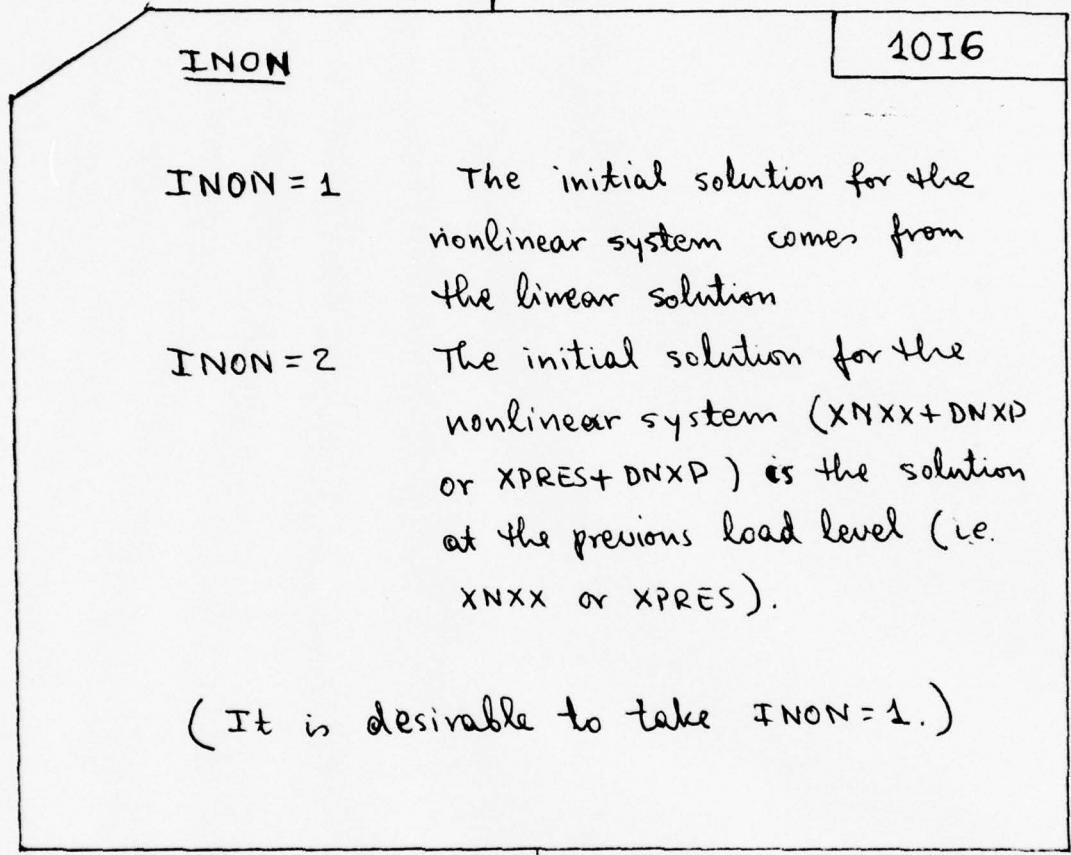 INON 10I6
INON = 1 The initial solution for the
nonlinear system comes from
the linear solution
INON = 2 The initial solution for the
nonlinear system (XNXX + DNXP
or XPRES + DNXP) is the solution
at the previous load level (i.e.
XNXX or XPRES).
(It is desirable to take INON = 1.)